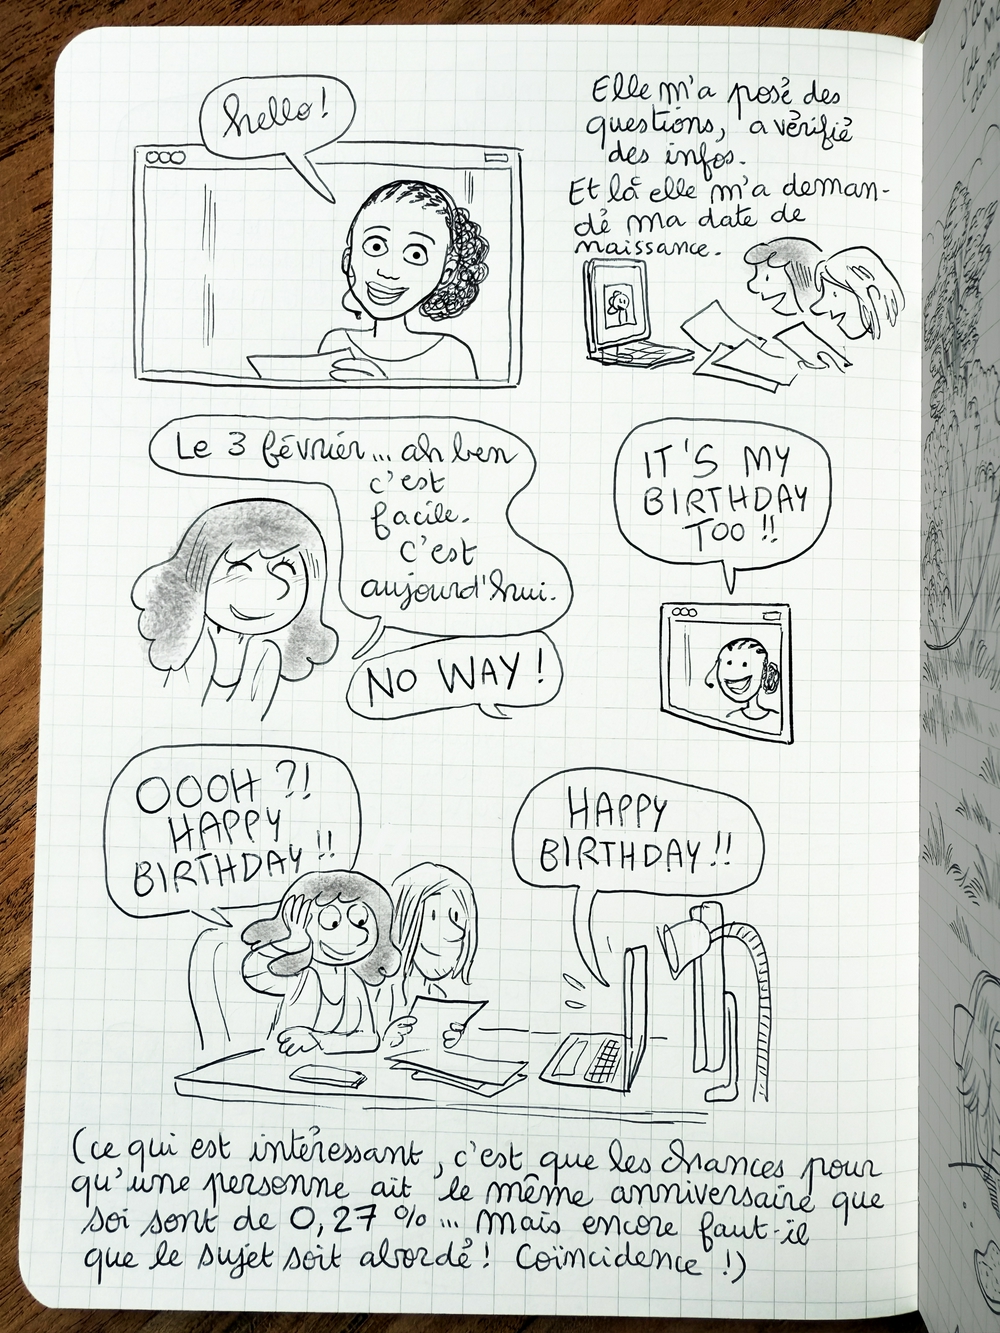 hello!
Elle m'a posé des
questions, a vérifié
des infos.
Et là elle m'a deman-
dé ma date de
naissance.
Le 3 février... ah ben
c'est
facile.
C'est
aujourd'hui.
NO WAY !
IT'S MY
BIRTHDAY
TOO !!
OOOH ?!
HAPPY
BIRTHDAY !!
HAPPY
BIRTHDAY !!
(ce qui est intéressant, c'est que les chances pour
qu'une personne ait le même anniversaire que
soi sont de 0,27 % ... mais encore faut-il
que le sujet soit abordé ! Coïncidence !)